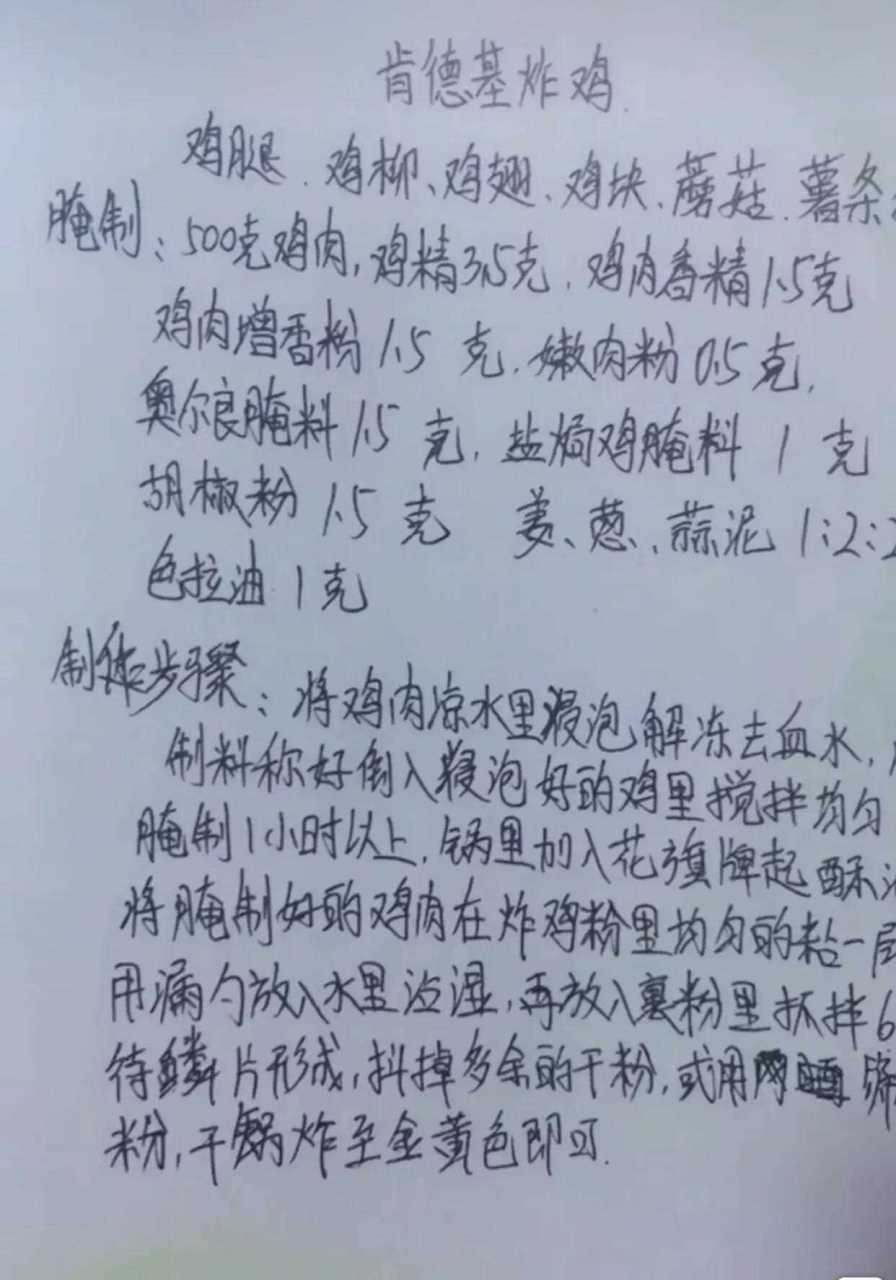 肯德基炸鸡.
鸡腿、鸡柳、鸡翅、鸡块、蘑菇、薯条
腌制：500克鸡肉,鸡精3.5克,鸡肉香精1.5克
鸡肉增香粉1.5克,嫩肉粉0.5克,
奥尔良腌料1.5克,盐焗鸡腌料1克
胡椒粉1.5克 姜、葱、蒜泥1:2:2
色拉油1克
制作步骤：将鸡肉凉水里浸泡解冻去血水,
制料称好倒入浸泡好的鸡里搅拌均匀
腌制1小时以上,锅里加入花旗牌起酥
将腌制好的鸡肉在炸鸡粉里均匀的粘一层
用漏勺放入水里沾湿,再放入裹粉里抓拌6
待鳞片形成,抖掉多余的干粉,或用网筛
粉,下锅炸至金黄色即可.